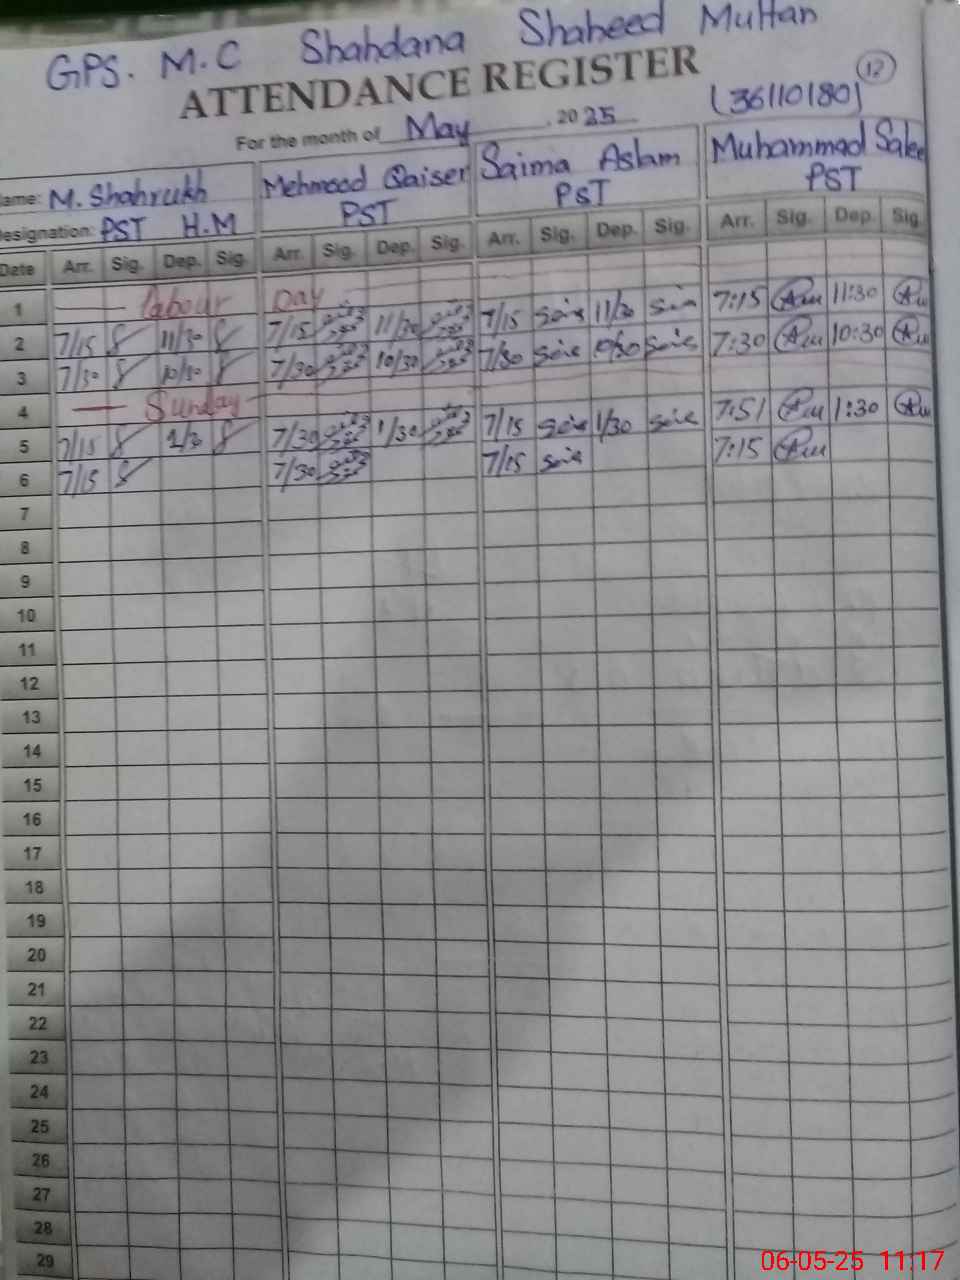 GPS. M.C Shahdana Shaheed Multan
ATTENDANCE REGISTER
12
(36110180)
For the month of May, 2025
ame: M. Shahrukh Mehmood Qaiser Saima Aslam Muhammad Salee
esignation: PST H.M PST PST PST
Date Arr. Sig. Dep. Sig. Arr. Sig. Dep. Sig. Arr. Sig. Dep. Sig. Arr. Sig. Dep. Sig.
1 Labour Day
2 7/15 11/30 7/15 11/30 7/15 11/30 7:15 11:30
3 7/30 10/30 7/30 10/30 7/30 10/30 7:30 10:30
4 Sunday
5 7/15 1/30 7/30 1/30 7/15 1/30 7:51 1:30
6 7/15 7/30 7/15 7:15
7
8
9
10
11
12
13
14
15
16
17
18
19
20
21
22
23
24
25
26
27
28
29
06-05-25 11:17